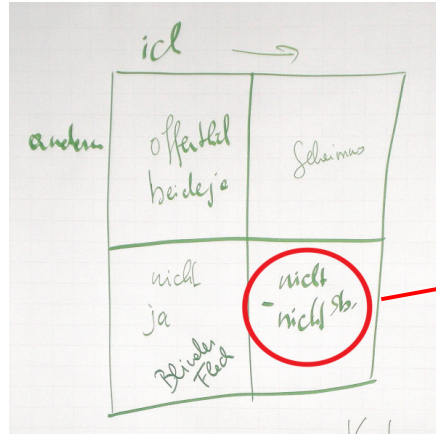 ich
andere
öffentlich
beide ja
Geheimnis
nicht
ja
Blinder
Fleck
nicht
- nicht